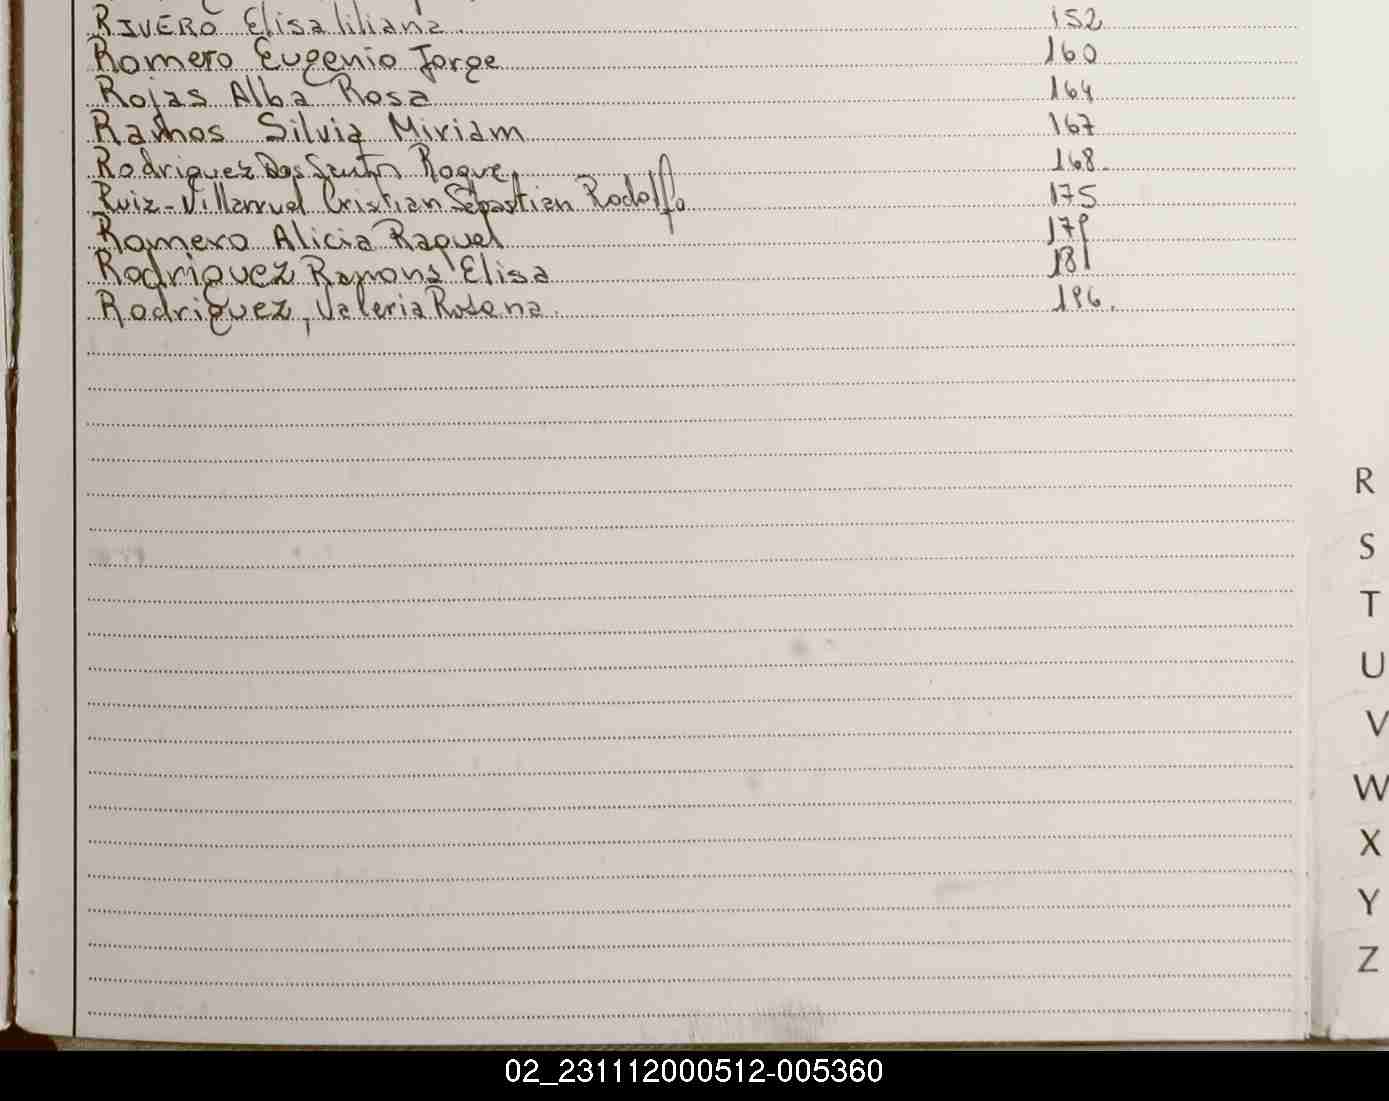 RIVERO Elisa liliana. 152
Romero Eugenio Jorge 160
Rojas Alba Rosa 164
Ramos Silvia Miriam 167
Rodriguez Dos Santos Roque 168.
Ruiz-Villarruel Cristian Sebastian Rodolfo 175
Romero Alicia Raquel 179
Rodriguez Ramona Elisa 181
Rodriguez, Valeria 196.
R
S
T
U
V
W
X
Y
Z
02_231112000512-005360